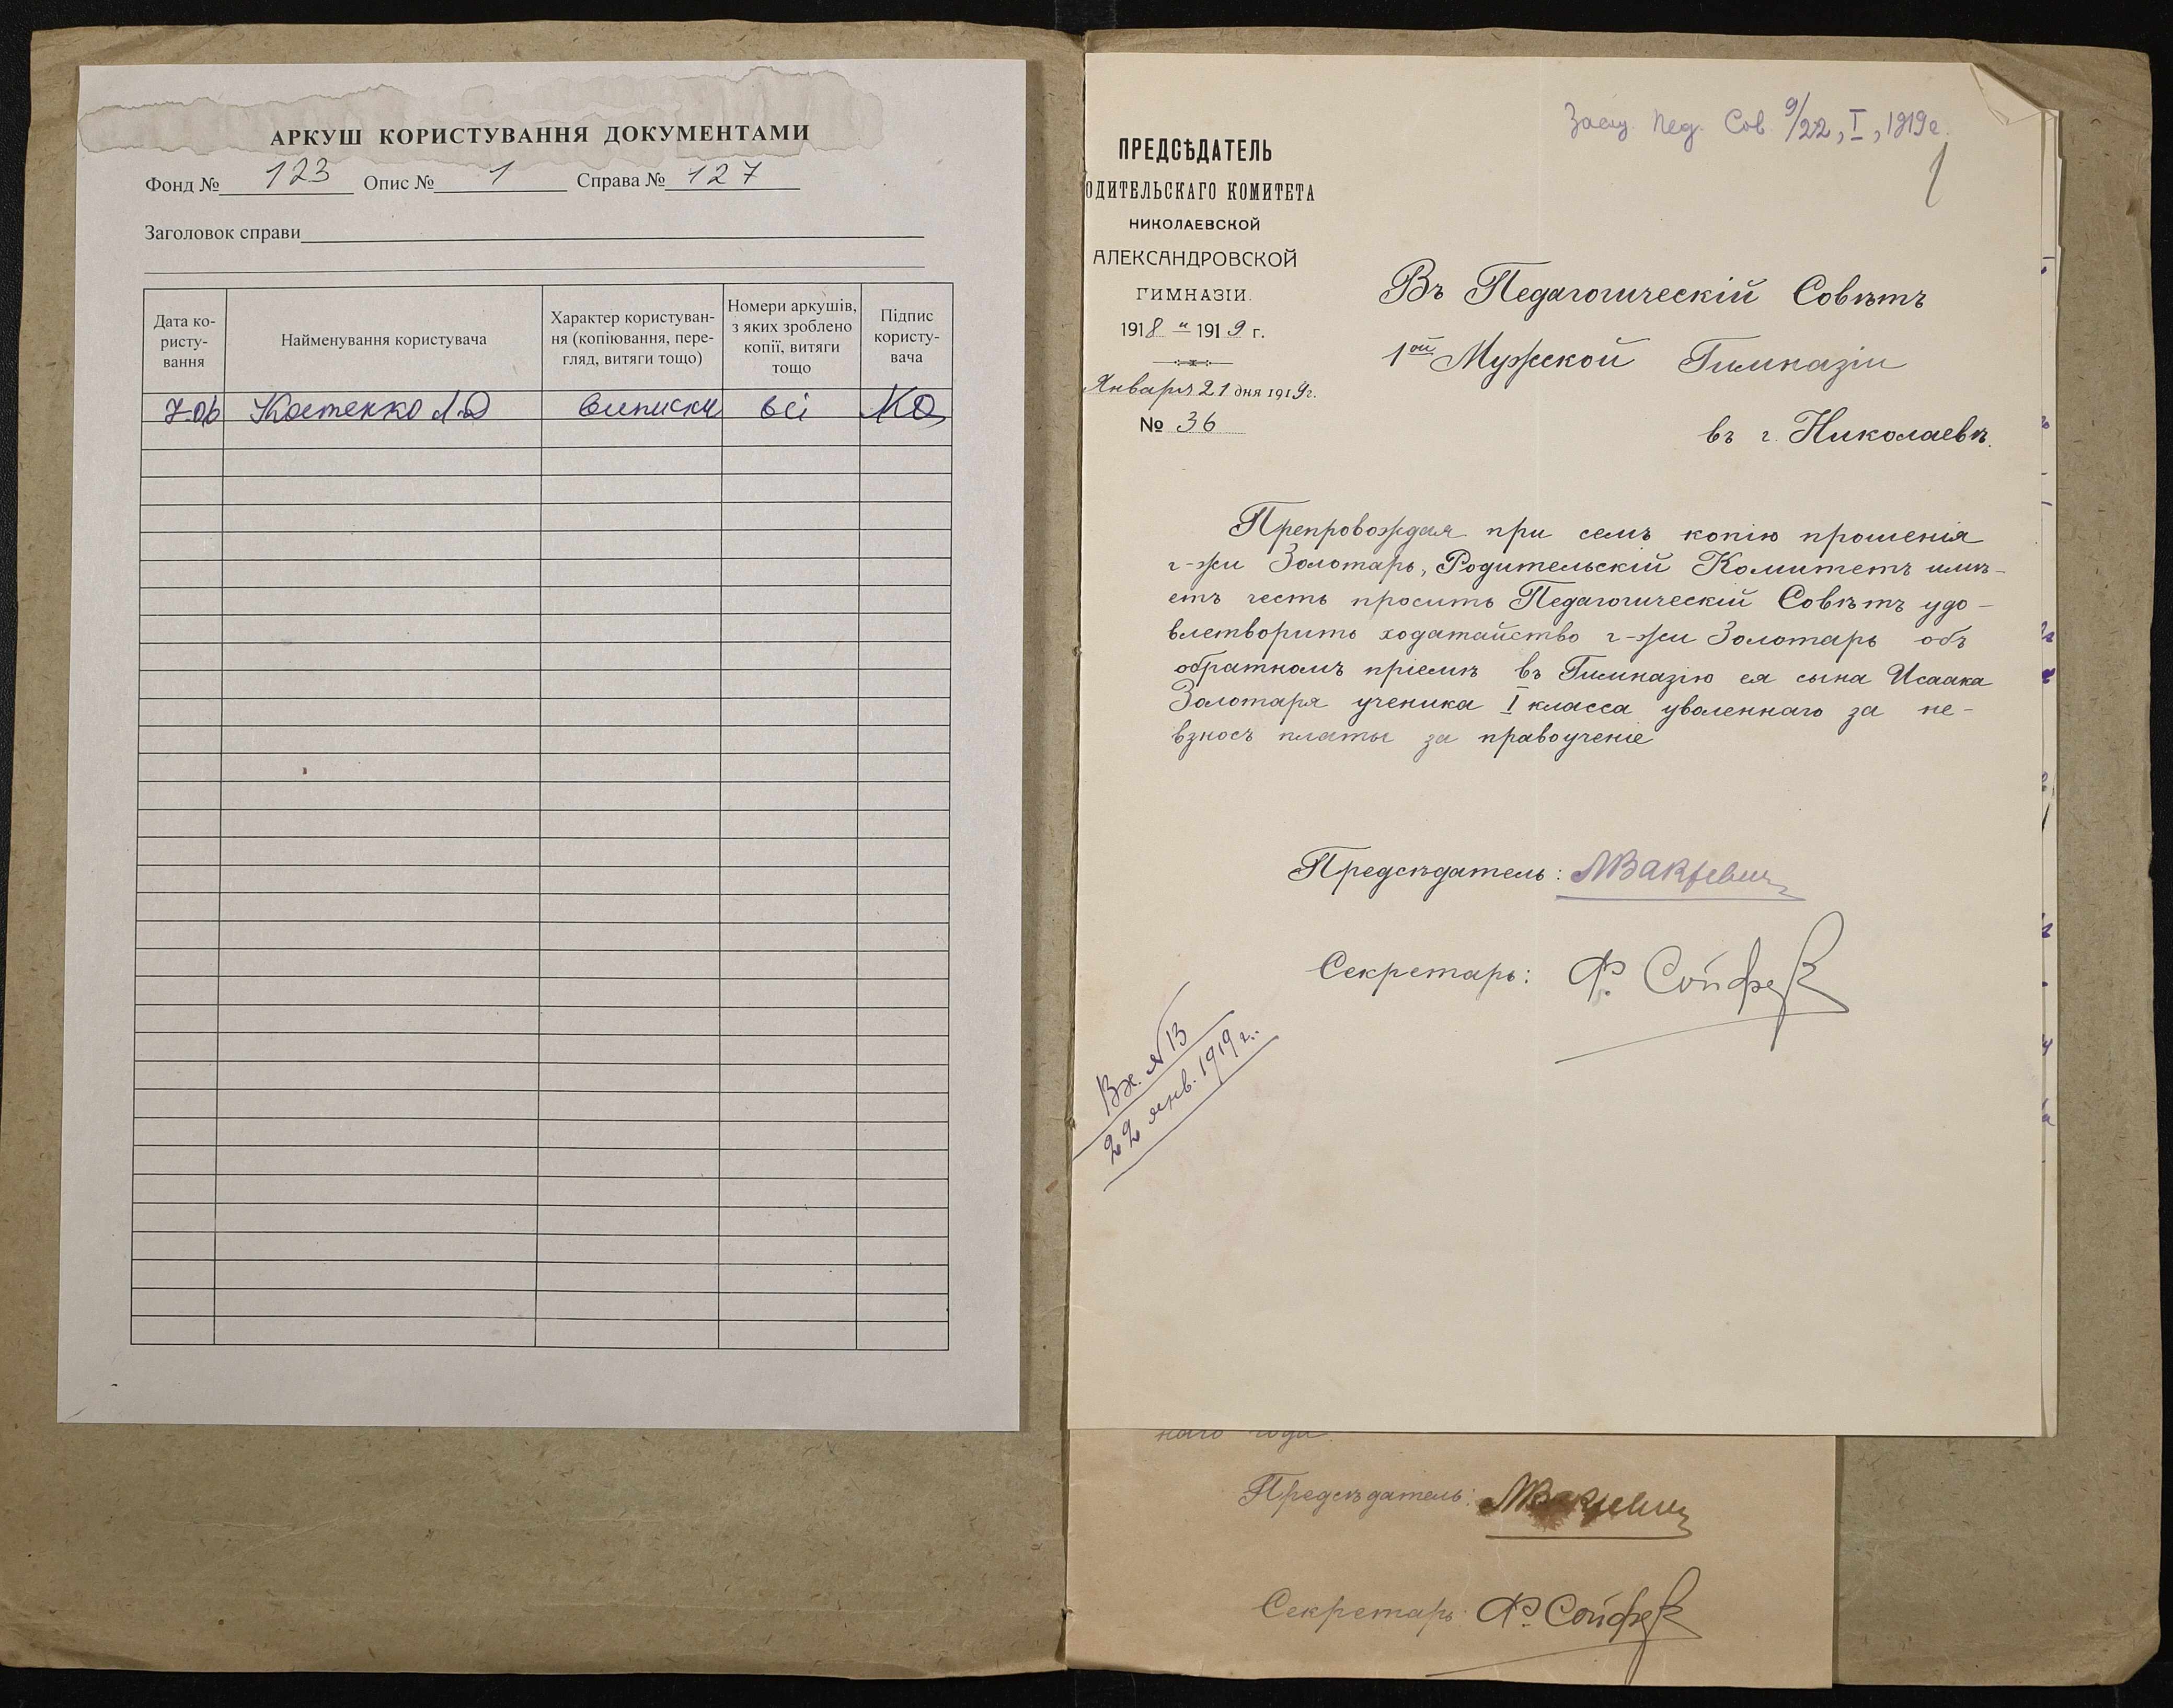 АРКУШ КОРИСТУВАННЯ ДОКУМЕНТАМИ
Фонд № 123 Опис № 1 Справа № 127
Заголовок справи
Дата ко-
ристу-
вання
Найменування користувача
Характер користуван-
ня (копіювання, пере-
гляд, витяги тощо)
Номери аркушів,
з яких зроблено
копії, витяги
тощо
Підпис
користу-
вача
Костенко Л.Д виписки всі
Засѣд. Пед. Сов. 9/22, I, 1919 г.
1
ПРЕДСѢДАТЕЛЬ
ОДИТЕЛЬСКАГО КОМИТЕТА
НИКОЛАЕВСКОЙ
АЛЕКСАНДРОВСКОЙ
ГИМНАЗІИ.
1918 – 1919 г.
Января 21 дня 1919 г.
№ 36
Въ Педагогическій Совѣтъ
1ой Мужской Гимназіи
въ г. Николаевѣ.
Препровождая при семъ копію прошенія
г-жи Золотарь, Родительскій Комитетъ имѣ-
етъ честь просить Педагогическій Совѣтъ удо-
влетворить ходатайство г-жи Золотарь объ
обратномъ пріемѣ въ Гимназію ея сына Исаака
Золотаря ученика I класса уволеннаго за не-
взносъ платы за правоученіе
Предсѣдатель:
Секретарь: Ф. Сойфер
Вх. № 13
22 янв. 1919 г.
наго года.
Предсѣдатель:
Секретарь: Ф. Сойфер